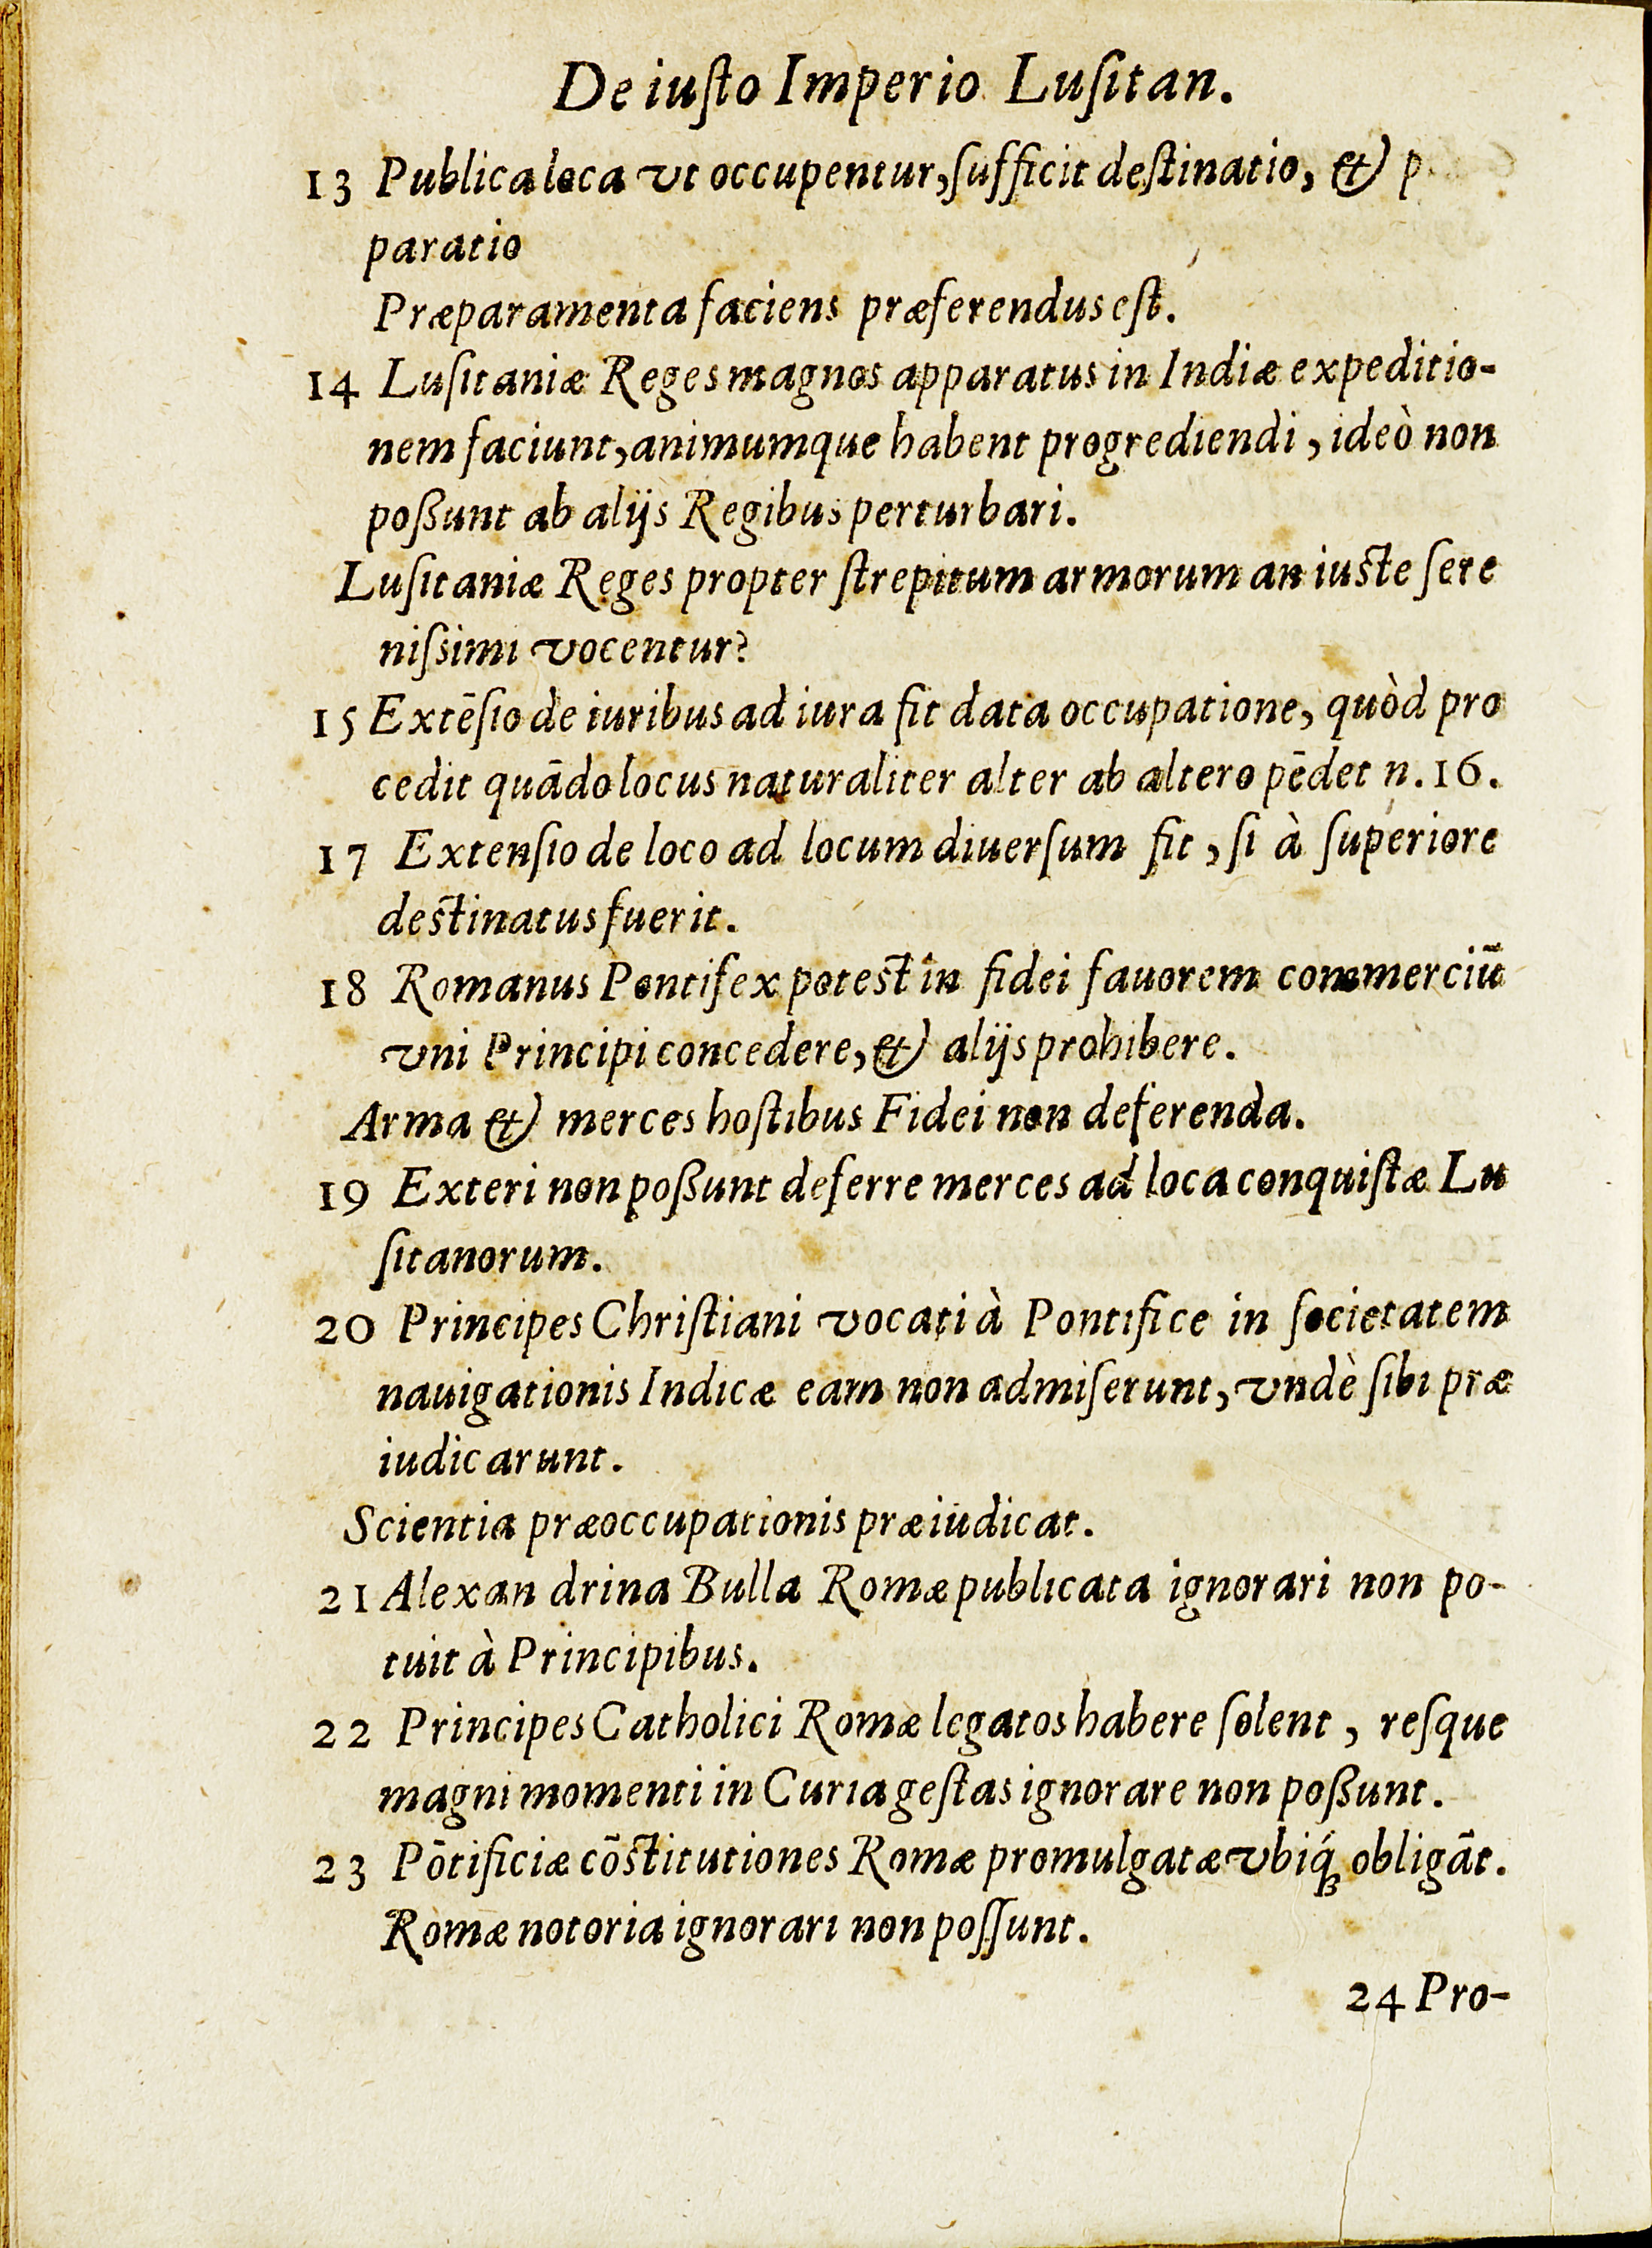 De iuſto Imperio Luſitan.
13 Publica loca vt occupentur, ſufficit deſtinatio, &
paratio
Præparamenta faciens præferendus eſt.
14 Luſitaniæ Reges magnos apparatus in Indiæ expeditio-
nem faciunt, animumque habent progrediendi, ideò non
poßunt ab alijs Regibus perturbari.
Luſitaniæ Reges propter ſtrepitum armorum an iuſte ſere
niſsimi vocentur?
15 Extēſio de iuribus ad iura fit data occupatione, quòd pro
cedit quādo locus naturaliter alter ab altero pēdet n. 16.
17 Extenſio de loco ad locum diuerſum fit, ſi à ſuperiore
deſtinatus fuerit.
18 Romanus Pontifex poteſt in fidei fauorem commerciū
vni Principi concedere, & alijs prohibere.
Arma & merces hoſtibus Fidei non deferenda.
19 Exteri non poßunt deferre merces ad loca conquiſtæ Lu
ſitanorum.
20 Principes Chriſtiani vocati à Pontifice in ſocietatem
nauigationis Indicæ eam non admiſerunt, vndè ſibi præ
iudicarunt.
Scientia præoccupationis præiudicat.
21 Alexan drina Bulla Romæ publicata ignorari non po-
tuit à Principibus.
22 Principes Catholici Romæ legatos habere ſolent, reſque
magni momenti in Curia geſtas ignorare non poßunt.
23 Pōtificiæ cōſtitutiones Romæ promulgatæ vbiq́; obligāt.
Romæ notoria ignorari non poſſunt.
24 Pro-